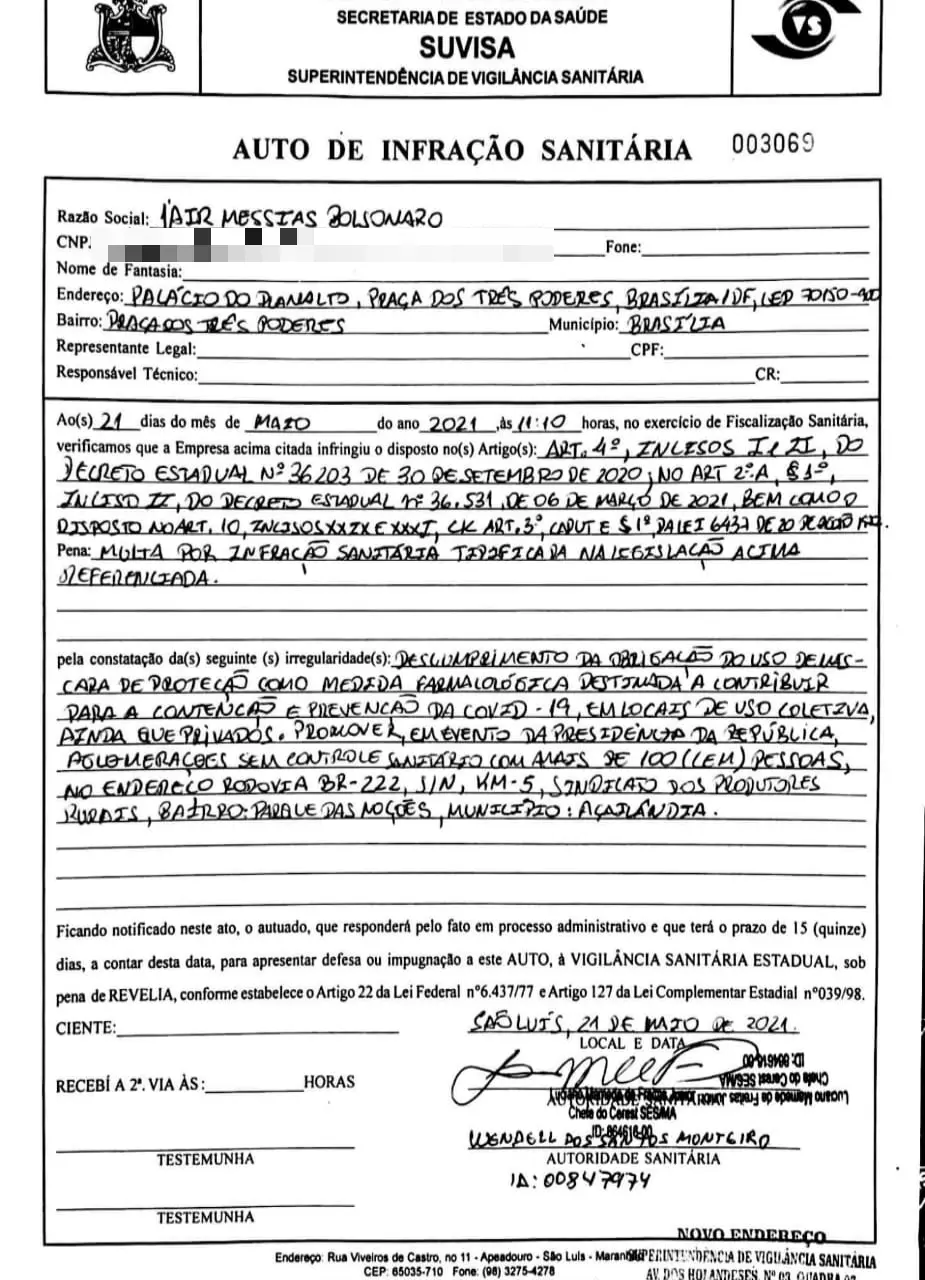 SECRETARIA DE ESTADO DA SAÚDE
SUVISA
SUPERINTENDÊNCIA DE VIGILÂNCIA SANITÁRIA
VS
AUTO DE INFRAÇÃO SANITÁRIA 003069
Razão Social: JAIR MESSIAS BOLSONARO
CNPJ:
Fone:
Nome de Fantasia:
Endereço: PALÁCIO DO PLANALTO, PRAÇA DOS TRÊS PODERES, BRASÍLIA/DF, CEP 70150-900
Bairro: PRAÇA DOS TRÊS PODERES Município: BRASÍLIA
Representante Legal: CPF:
Responsável Técnico: CR:
Ao(s) 21 dias do mês de MAIO do ano 2021 ,às 11:10 horas, no exercício de Fiscalização Sanitária,
verificamos que a Empresa acima citada infringiu o disposto no(s) Artigo(s): ART. 4º, INCISOS I e II, DO
DECRETO ESTADUAL Nº 36203 DE 30 DE SETEMBRO DE 2020; NO ART 2º.A, § 1º,
INCISO II, DO DECRETO ESTADUAL Nº 36.531, DE 06 DE MARÇO DE 2021, BEM COMO O
DISPOSTO NO ART. 10, INCISOS XXIX E XXXI, C/C ART. 3º, CAPUT E § 1º, DA LEI 6437 DE 20 DE AGOSTO
Pena: MULTA POR INFRAÇÃO SANITÁRIA TIPIFICADA NA LEGISLAÇÃO ACIMA
REFERENCIADA.
pela constatação da(s) seguinte (s) irregularidade(s): DESCUMPRIMENTO DA OBRIGAÇÃO DO USO DE MÁS-
CARA DE PROTEÇÃO COMO MEDIDA FARMALOLÓGICA DESTINADA À CONTRIBUIR
PARA A CONTENÇÃO E PREVENÇÃO DA COVID-19, EM LOCAIS DE USO COLETIVA,
AINDA QUE PRIVADOS. PROMOVER, EM EVENTO DA PRESIDÊNCIA DA REPÚBLICA,
AGLOMERAÇÕES SEM CONTROLE SANITÁRIO COM MAIS DE 100 (CEM) PESSOAS,
NO ENDEREÇO RODOVIA BR-222, S/N, KM-5, SINDICATO DOS PRODUTORES
RURAIS, BAIRRO: PARQUE DAS NOÇÕES, MUNICÍPIO: AÇAILÂNDIA.
Ficando notificado neste ato, o autuado, que responderá pelo fato em processo administrativo e que terá o prazo de 15 (quinze)
dias, a contar desta data, para apresentar defesa ou impugnação a este AUTO, à VIGILÂNCIA SANITÁRIA ESTADUAL, sob
pena de REVELIA, conforme estabelece o Artigo 22 da Lei Federal nº6.437/77 e Artigo 127 da Lei Complementar Estadial nº039/98.
CIENTE:
SÃO LUÍS, 21 DE MAIO DE 2021.
LOCAL E DATA
RECEBÍ A 2ª. VIA ÀS: HORAS
AUTORIDADE SANITÁRIA
Chefe do Cerest SES/MA
WENDELL DOS SANTOS MONTEIRO
TESTEMUNHA
AUTORIDADE SANITÁRIA
ID: 00847974
TESTEMUNHA
NOVO ENDEREÇO
Endereço: Rua Viveiros de Castro, no 11 - Apeadouro - São Luis - Maranhão
SUPERINTENDÊNCIA DE VIGILÂNCIA SANITÁRIA
CEP: 65035-710 Fone: (98) 3275-4278
AV. DOS HOLANDESES, Nº 03, QUADRA